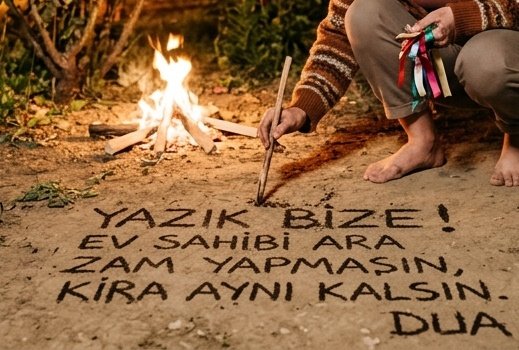 YAZIK BİZE!
EV SAHİBİ ARA
ZAM YAPMASIN,
KİRA AYNI KALSIN.
DUA